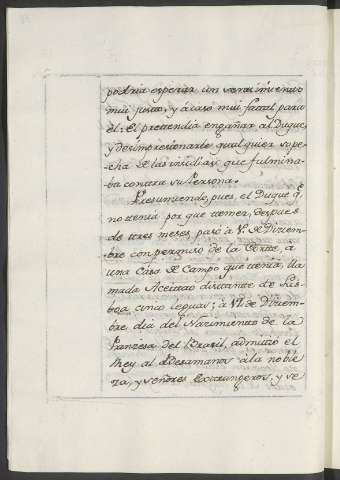 podria esperar un
mui justo, y acaso mui fatal para
él: El prettendia engañar al Duque,
y desimpresionarle qualquier sospe-
cha de las insidias que fulmina-
ba contra su Persona.
Presumiendo, pues, el Duque q.
no ttenia por que ttemer, despues
de ttres meses, pasó à V. de Diziem-
bre con permiso de la Cortte à
una Casa de Campo que ttenia, lla-
mada Aceittao disttante de Lis-
boa cinco leguas; à de Diziem-
bre, dia del Nazimientto de la
Prinzesa del Brasil, admittió el
Rey al Besamanos à la noble-
za, y señores Extrangeros, y se